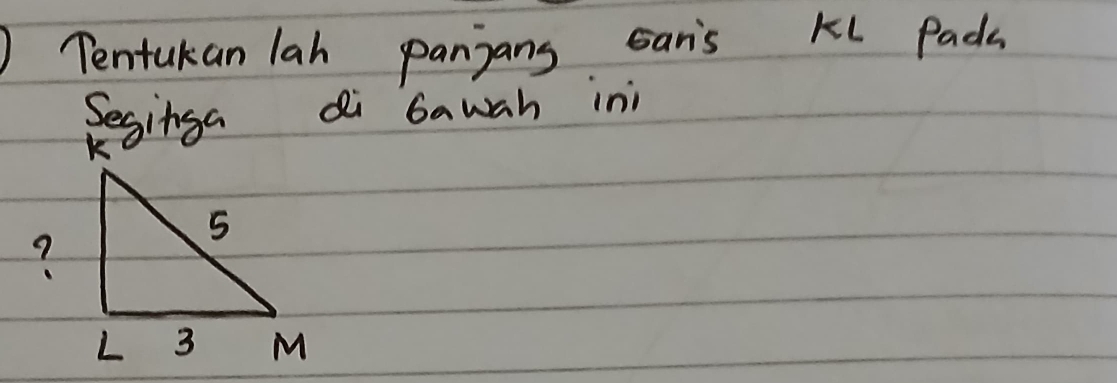 ) Tentukan lah panjang garis KL Pada
Segitiga di bawah ini
K
5
?
L 3 M